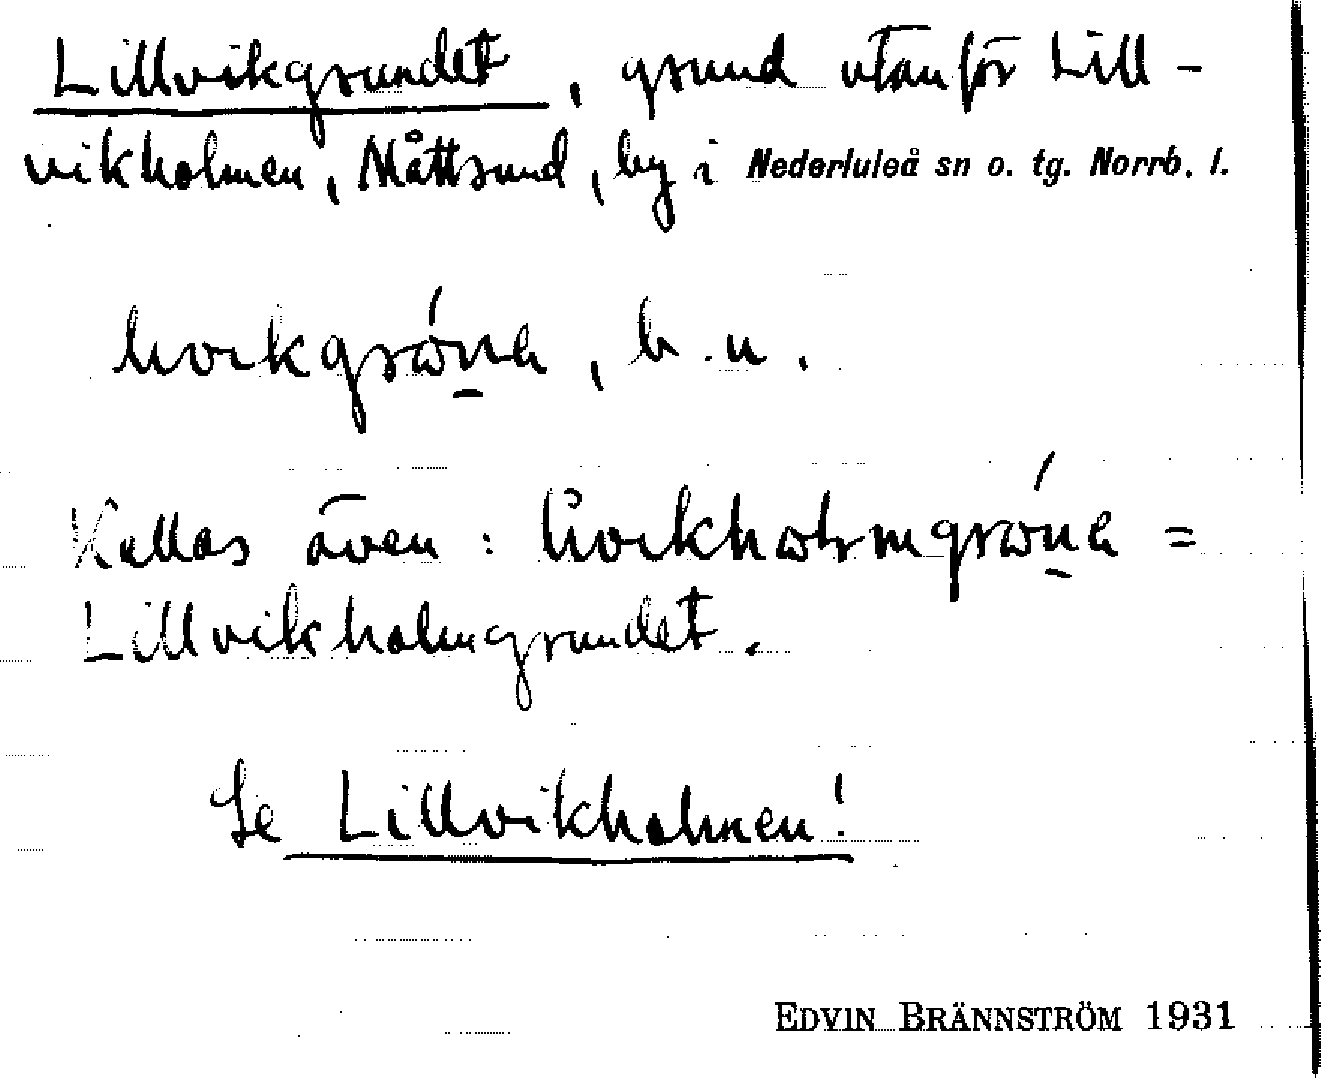 Lillvikgrundet, grund utanför Lill-
vikholmen, Måttsund, by i Nederluleå sn o. tg. Norrb. l.
b.n.
Kallas även: =
Lillvikholmgrundet.
Se Lillvikholmen!
EDVIN BRÄNNSTRÖM 1931